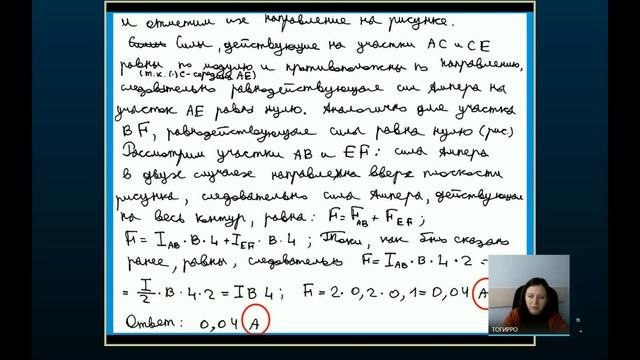 и отметим их направление на рисунке.
Силы, действующие на участки AC и CE
равны по модулю и противоположны по направлению,
(т.к. (·)C - середина AE)
следовательно равнодействующая сил Ампера на
участок AE равна нулю. Аналогично для участка
BF, равнодействующая силы равна нулю (рис.)
Рассмотрим участки AB и EF: сила Ампера
в двух случаях направлена вверх плоскости
рисунка, следовательно сила Ампера, действующая
на весь контур, равна: F=F_AB + F_EF;
F = I_AB · B · 4 + I_EF · B · 4; Токи, как было сказано
ранее, равны, следовательно F = I_AB · B · 4 · 2 =
= I/2 · B · 4 · 2 = I B 4; F = 2 · 0,2 · 0,1 = 0,04 A
Ответ: 0,04 A
ТОГИРРО